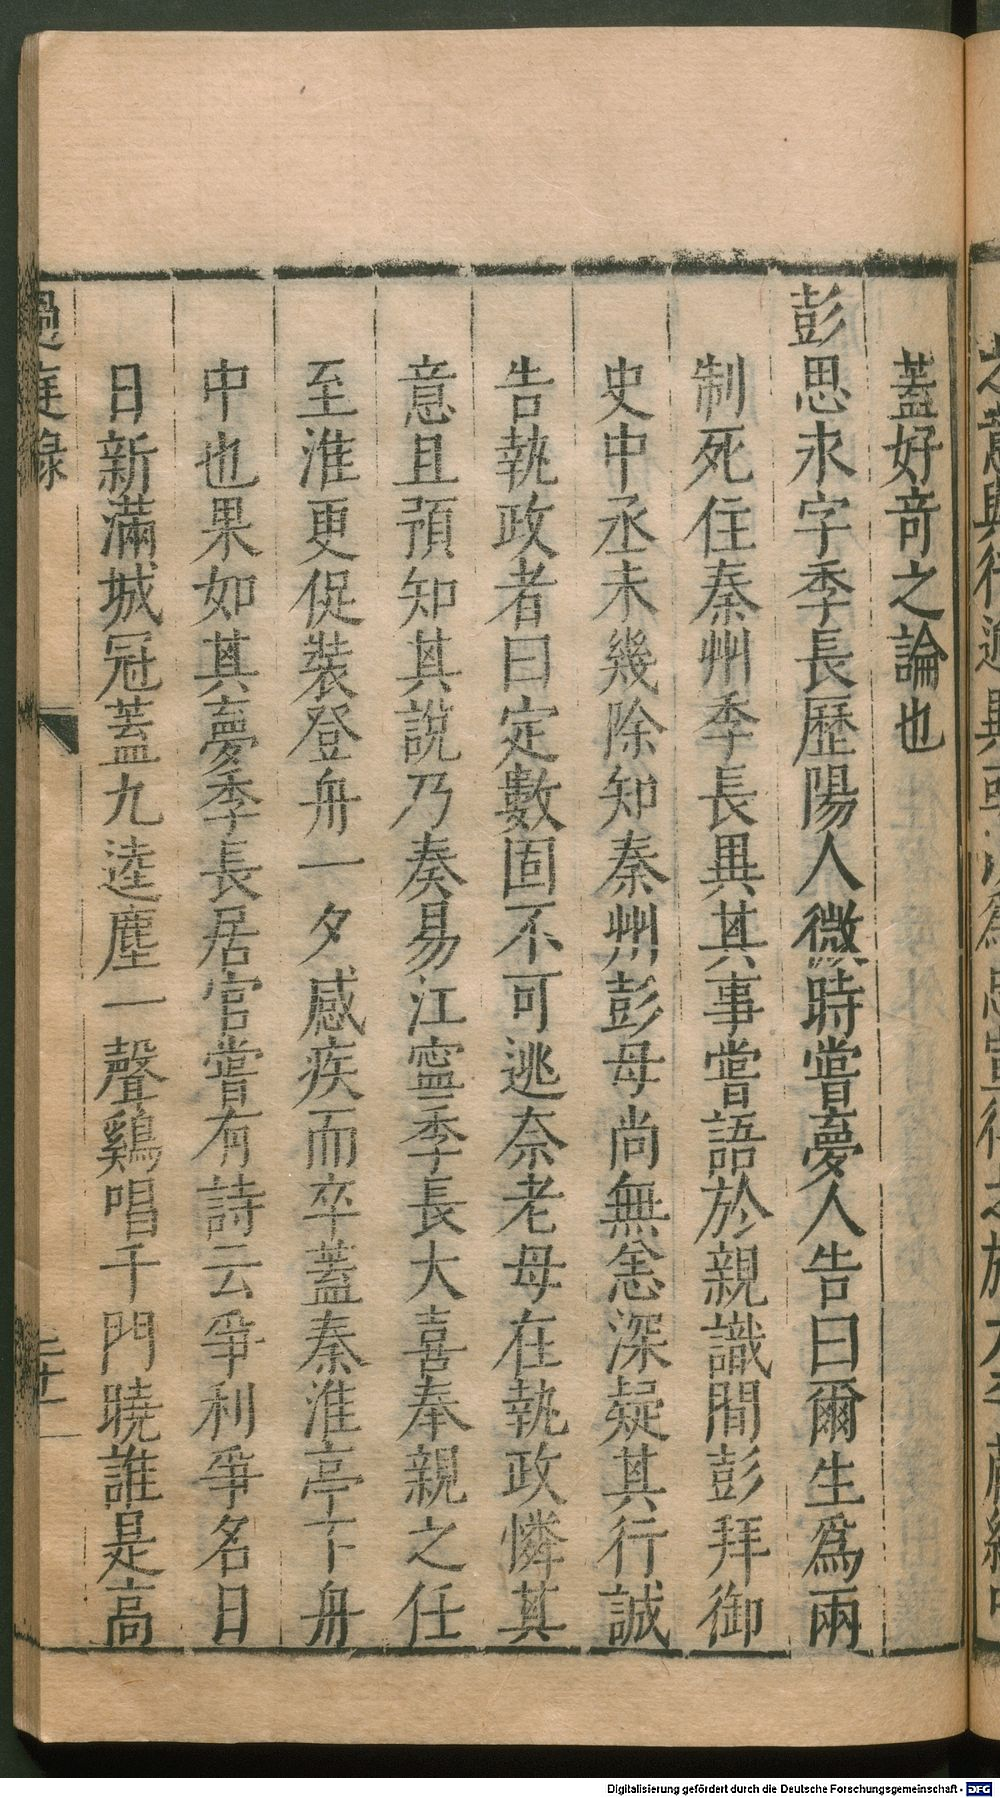 蓋好竒之論也
彭思永字季長歷陽人微時嘗夢人告曰爾生爲兩
制死住秦州季長異其事嘗語於親識間彭拜御
史中丞未幾除知秦州彭母尚無恙深疑其行誠
告執政者曰定數固不可逃奈老母在執政憐其
意且預知其說乃奏易江寧季長大喜奉親之任
至淮更促裝登舟一夕感疾而卒蓋秦淮亭下舟
中也果如其夢季長居官嘗有詩云爭利爭名日
日新滿城冠蓋九逵塵一聲鷄唱千門曉誰是高
過庭錄
二十一
Digitalisierung gefördert durch die Deutsche Forschungsgemeinschaft - DFG